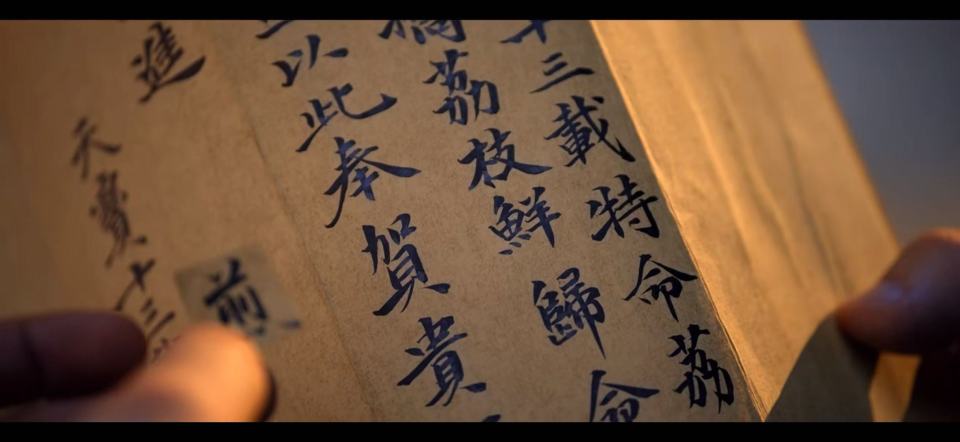 十三載特命荔
摘荔枝鮮歸命
以此奉賀貴
進
煎
天寶十三